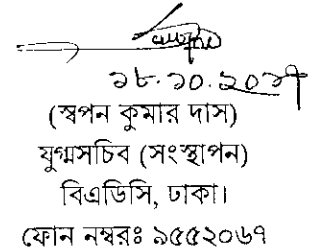 ১৮.১০.২০১৭
(স্বপন কুমার দাস)
যুগ্মসচিব (সংস্থাপন)
বিএডিসি, ঢাকা।
ফোন নম্বরঃ ৯৫৫২০৬৭